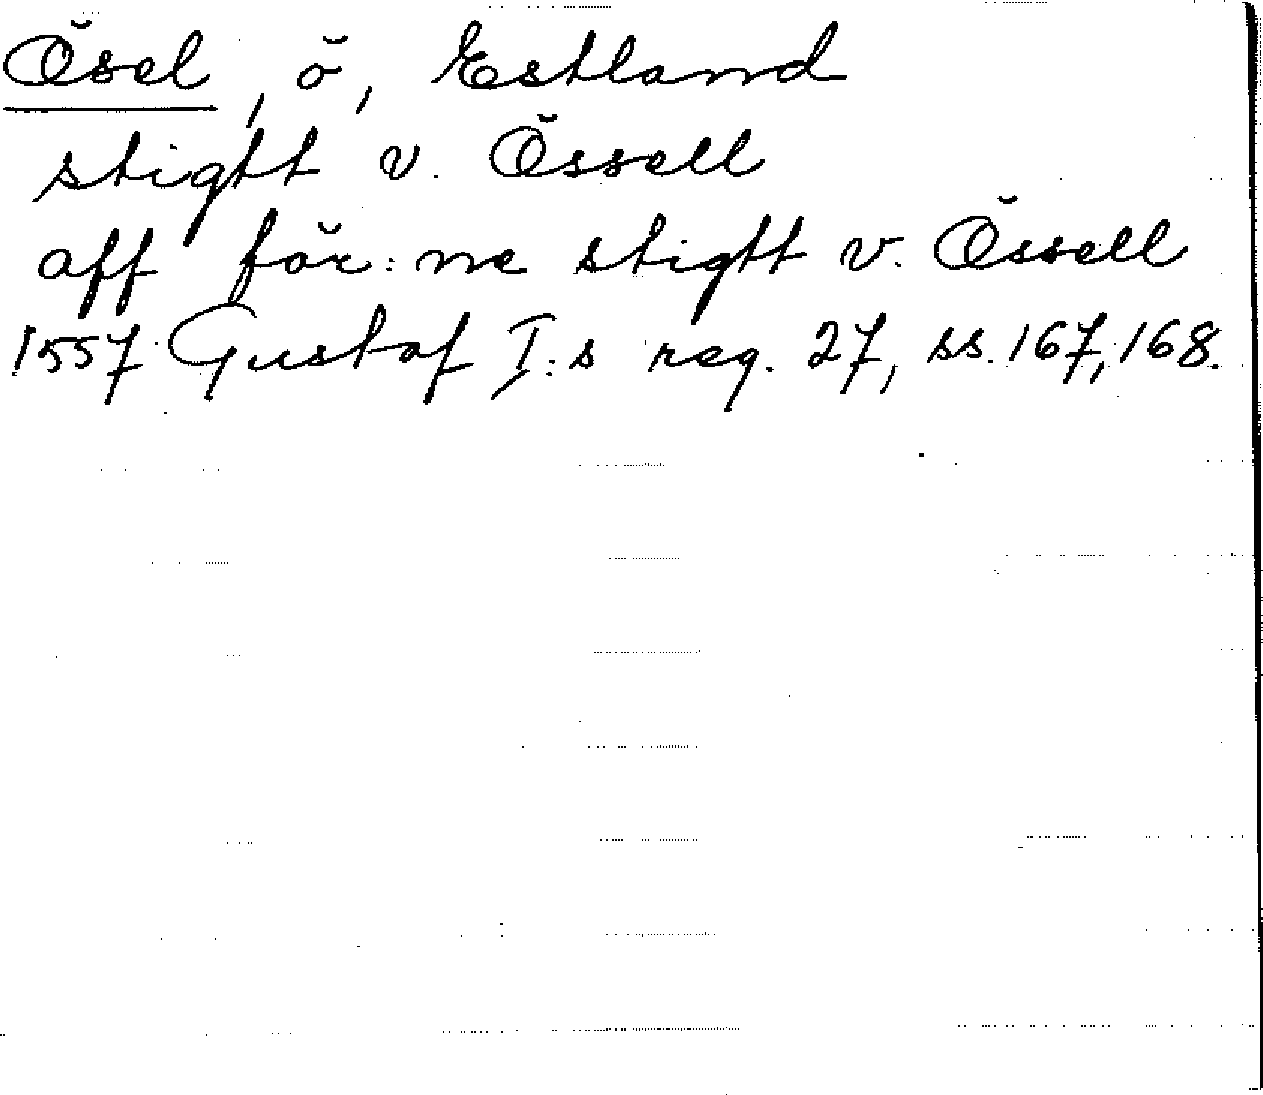 Ösel, ö, Estland
stigtt v. Össell
aff för:ne stigtt v. Össell
1557 Gustaf I:s reg. 27, ss. 167, 168.